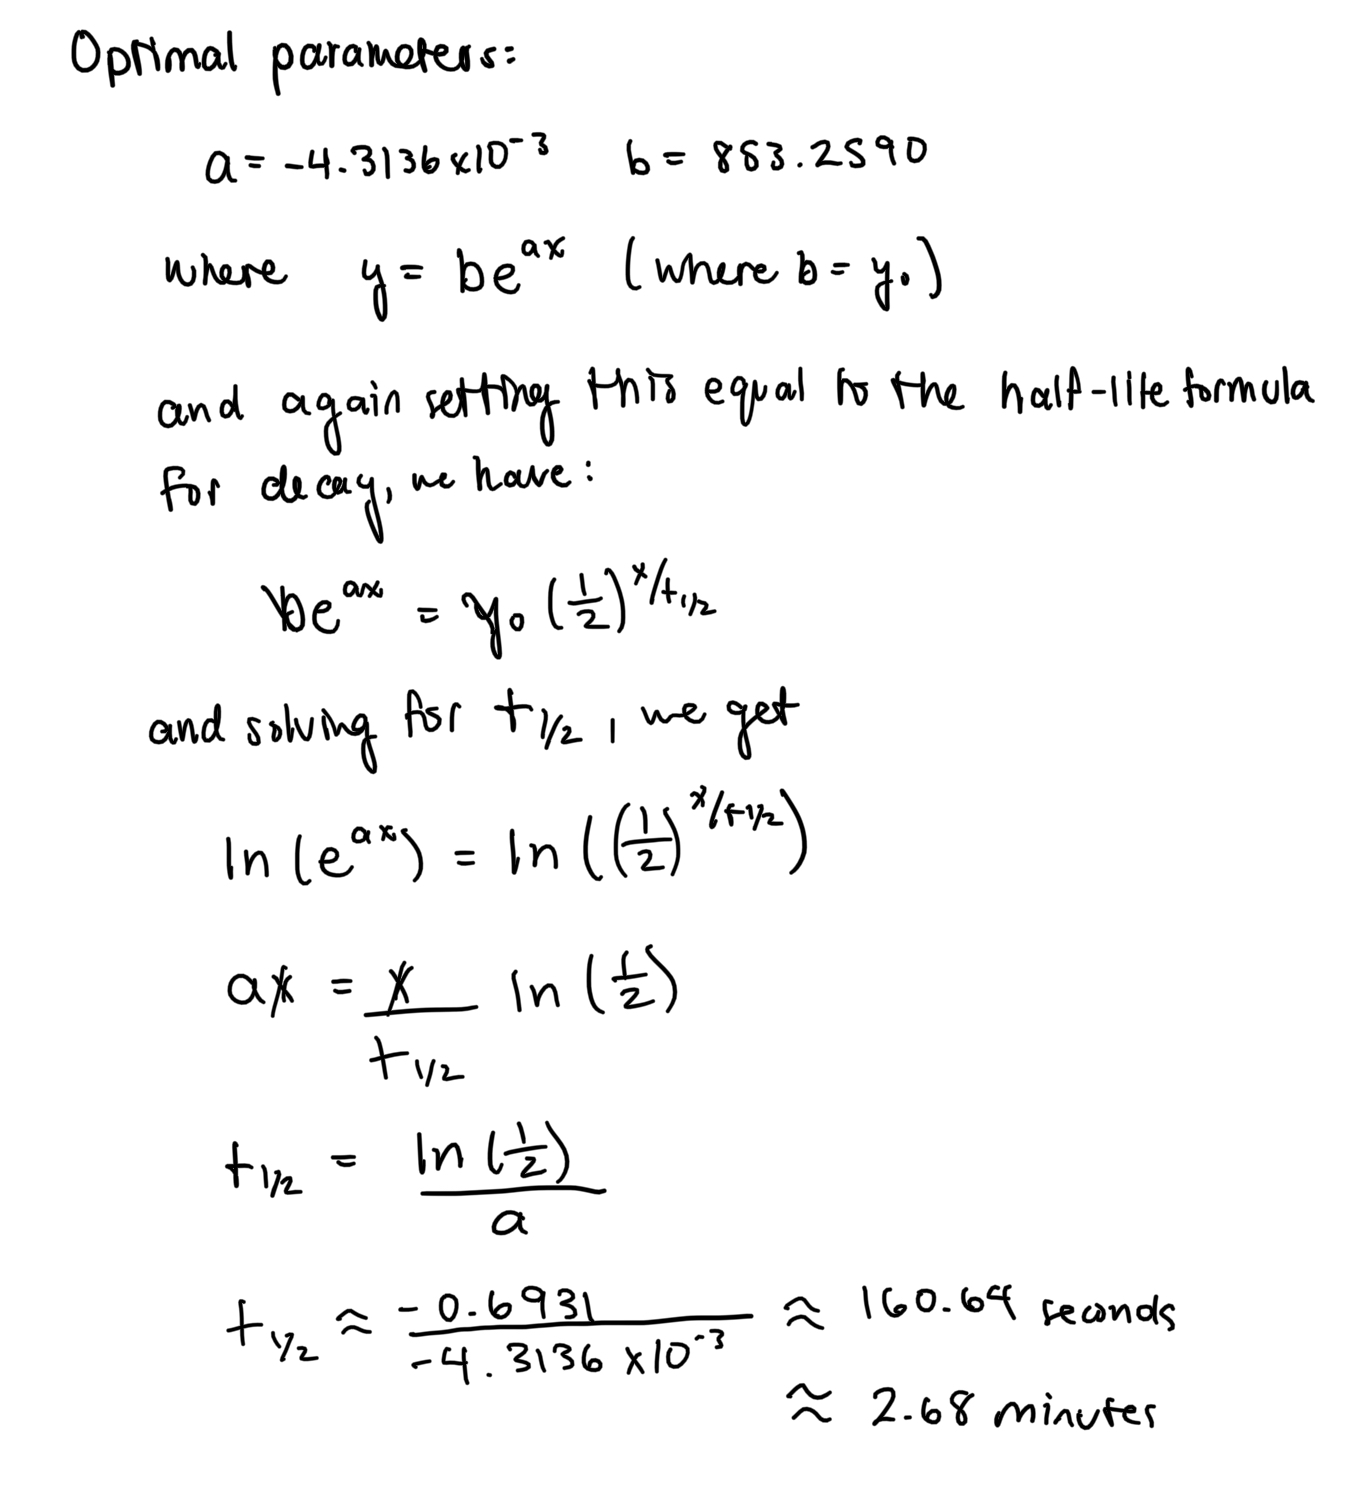 Optimal parameters:
a = -4.3136 x10⁻³ b = 853.2590
where y = be^{ax} (where b = y₀)
and again setting this equal to the half-life formula
for decay, we have:
be^{ax} = y₀ (1/2)^{x/t_{1/2}}
and solving for t_{1/2}, we get
ln (e^{ax}) = ln ((1/2)^{x/t_{1/2}})
ax = x/t_{1/2} ln (1/2)
t_{1/2} = ln (1/2)/a
t_{1/2} ≈ -0.6931/-4.3136 x10⁻³ ≈ 160.69 seconds
≈ 2.68 minutes